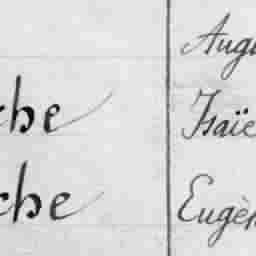 Augu
che Isaïe
che Eugèn